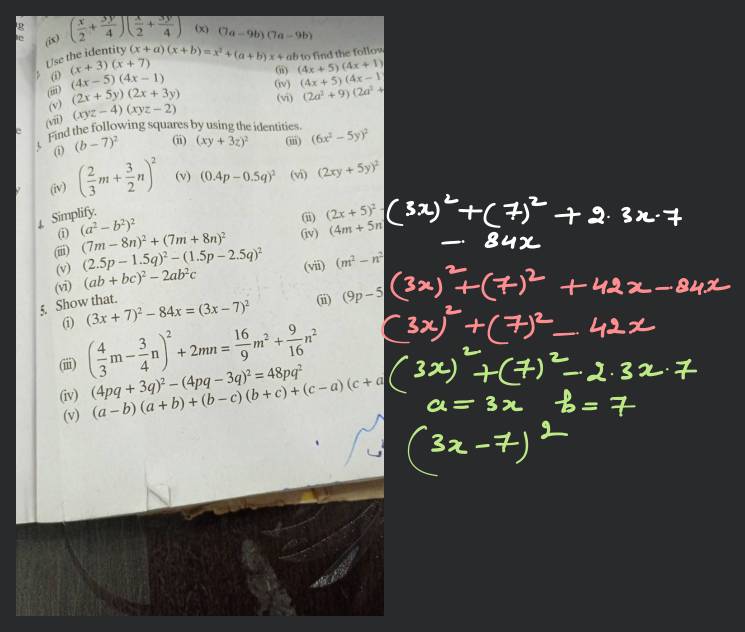 (ix) (x/2 + 3y/4) (x/2 + 3y/4) (x) (7a – 9b) (7a – 9b)
Use the identity (x + a) (x + b) = x² + (a + b) x + ab to find the follow
(i) (x + 3) (x + 7) (ii) (4x + 5) (4x + 1)
(iii) (4x – 5) (4x – 1) (iv) (4x + 5) (4x – 1
(v) (2x + 5y) (2x + 3y) (vi) (2a² + 9) (2a² +
(vii) (xyz – 4) (xyz – 2)
Find the following squares by using the identities.
(i) (b – 7)² (ii) (xy + 3z)² (iii) (6x² – 5y)²
(iv) (2/3 m + 3/2 n)² (v) (0.4p – 0.5q)² (vi) (2xy + 5y)²
4. Simplify.
(i) (a² – b²)² (ii) (2x + 5)² –
(iii) (7m – 8n)² + (7m + 8n)² (iv) (4m + 5n
(v) (2.5p – 1.5q)² – (1.5p – 2.5q)²
(vi) (ab + bc)² – 2ab²c (vii) (m² – n²
5. Show that.
(i) (3x + 7)² – 84x = (3x – 7)² (ii) (9p – 5
(iii) (4/3 m – 3/4 n)² + 2mn = 16/9 m² + 9/16 n²
(iv) (4pq + 3q)² – (4pq – 3q)² = 48pq²
(v) (a – b) (a + b) + (b – c) (b + c) + (c – a) (c + a
(3x)² + (7)² + 2·3x·7
– 84x
(3x)² + (7)² + 42x – 84x
(3x)² + (7)² – 42x
(3x)² + (7)² – 2·3x·7
a = 3x b = 7
(3x – 7)²